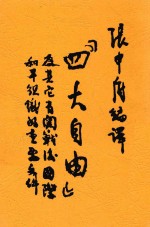 張申府編譯
「四大自由」
及其它有關戰後國際
和平組織的重要文件